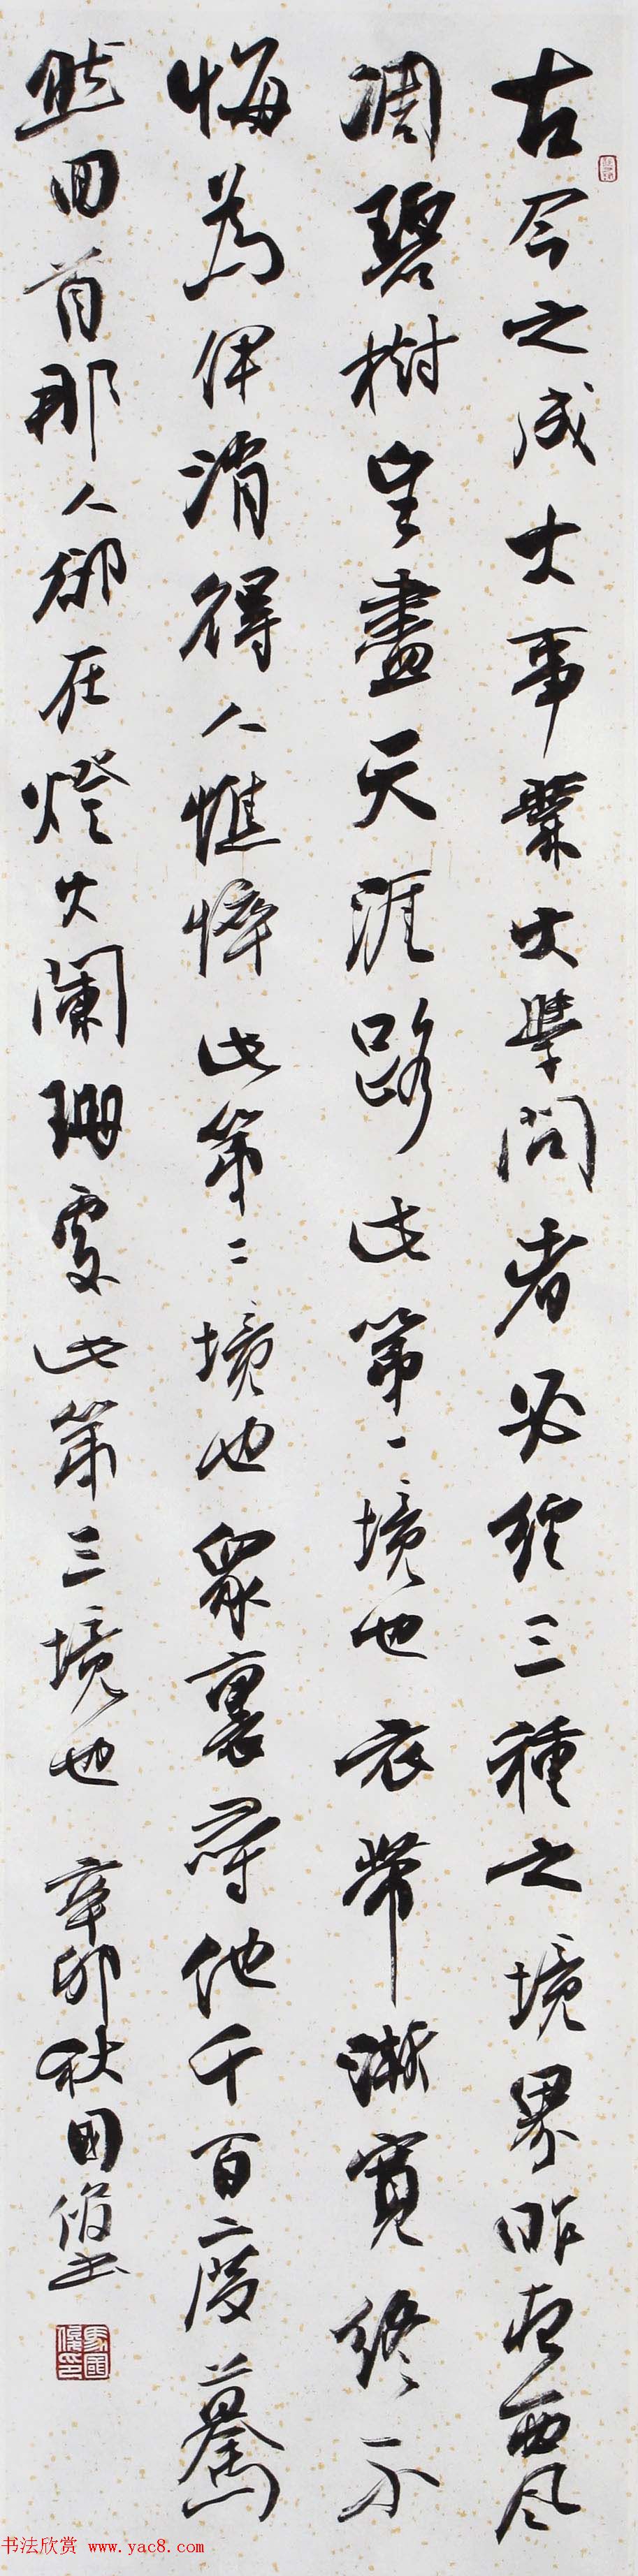 古今之成大事業大學問者必經三種之境界昨夜西風
凋碧樹望盡天涯路此第一境也衣帶漸寬終不
悔為伊消得人憔悴此第二境也眾裏尋他千百度驀
然回首那人卻在燈火闌珊處此第三境也 辛卯秋國俊書
馬國俊印
书法欣赏 www.yac8.com